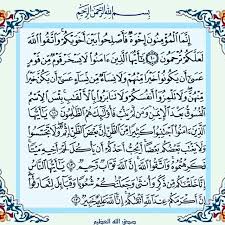 بسم الله الرحمن الرحيم
إنما المؤمنون إخوة فأصلحوا بين أخويكم واتقوا الله
لعلكم ترحمون يا أيها الذين ءامنوا لا يسخر قوم من قوم
عسى أن يكونوا خيرا منهم ولا نساء من نساء عسى أن يكن خيرا
منهن ولا تلمزوا أنفسكم ولا تنابزوا بالألقاب بئس الاسم
الفسوق بعد الإيمان ومن لم يتب فأولئك هم الظالمون
يا أيها الذين ءامنوا اجتنبوا كثيرا من الظن إن بعض الظن إثم
ولا تجسسوا ولا يغتب بعضكم بعضا أيحب أحدكم أن يأكل لحم أخيه ميتا
فكرهتموه واتقوا الله إن الله تواب رحيم يا أيها الناس
إنا خلقناكم من ذكر وأنثى وجعلناكم شعوبا وقبائل لتعارفوا
إن أكرمكم عند الله أتقاكم إن الله عليم خبير
صدق الله العظيم